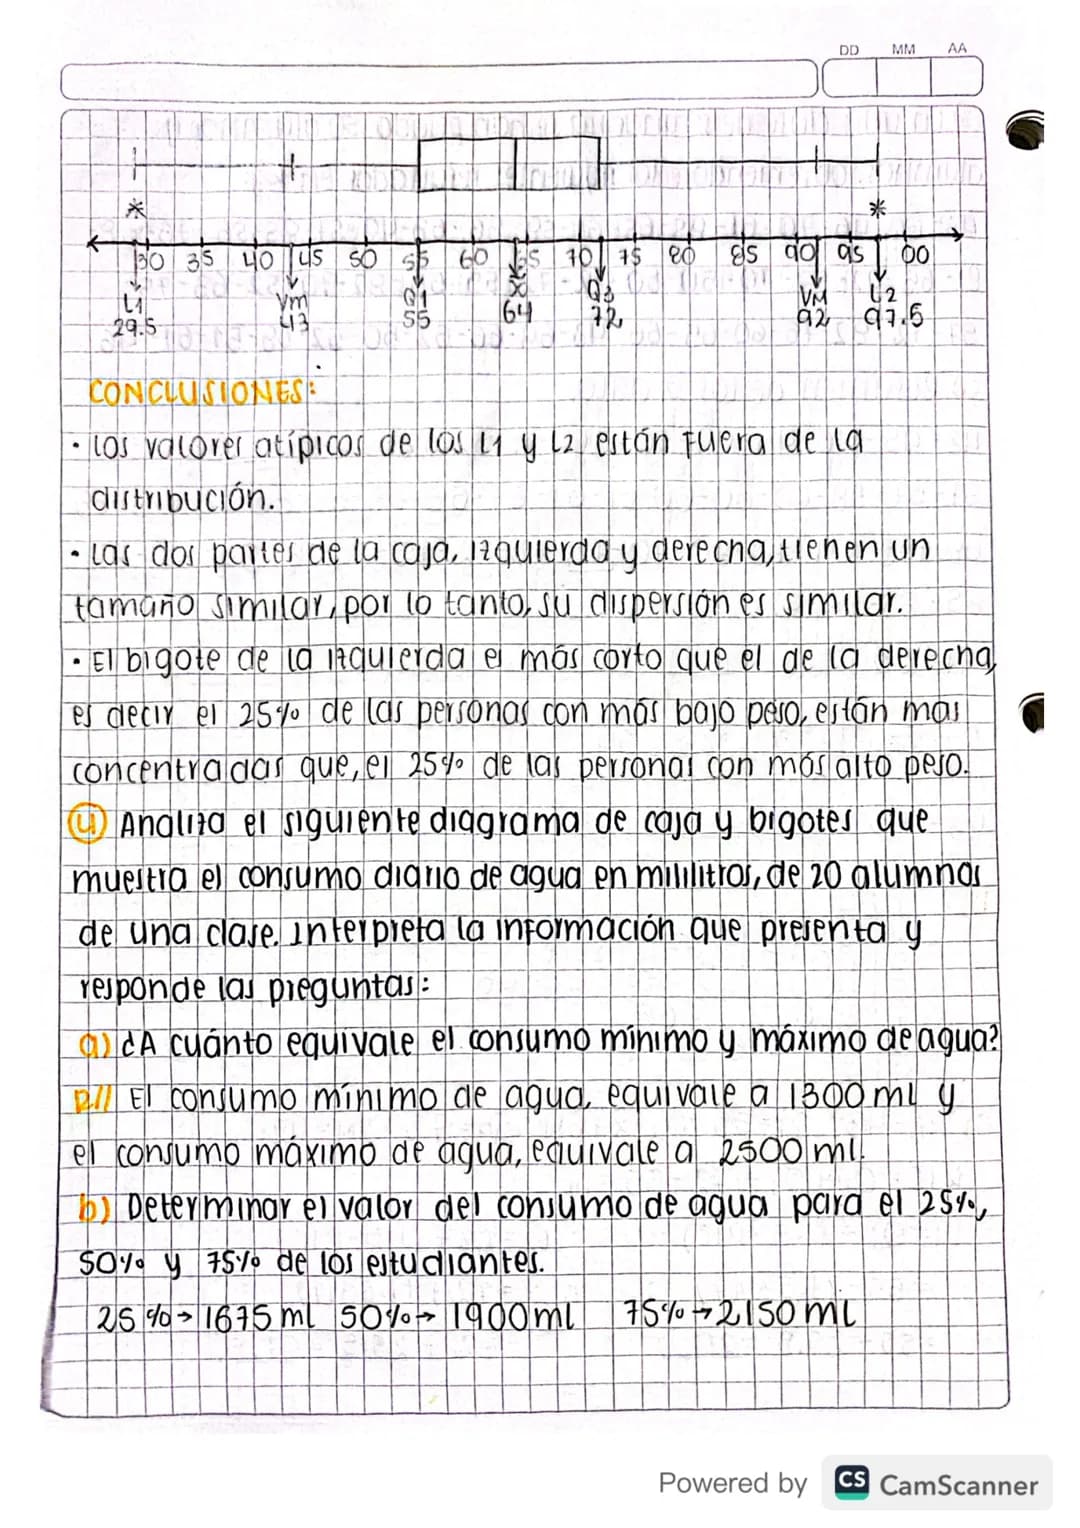 DD MM AA
* *
30 35 40 45 50 55 60 65 70 75 80 85 90 95 00
L1 Vm Q1 Q3 VM L2
29.5 43 55 64 72 92 97.5
CONCLUSIONES:
• Los valores atípicos de los L1 y L2 están fuera de la
distribución.
• Las dos partes de la caja, izquierda y derecha, tienen un
tamaño similar, por lo tanto, su dispersión es similar.
• El bigote de la izquierda es más corto que el de la derecha,
es decir el 25% de las personas con más bajo peso, están mas
concentradas que, el 25% de las personas con más alto peso.
4) Analiza el siguiente diagrama de caja y bigotes que
muestra el consumo diario de agua en mililitros, de 20 alumnos
de una clase. Interpreta la información que presenta y
responde las preguntas:
a) ¿A cuánto equivale el consumo mínimo y máximo de agua?
R// El consumo mínimo de agua, equivale a 1300 ml y
el consumo máximo de agua, equivale a 2500 ml.
b) Determinar el valor del consumo de agua para el 25%,
50% y 75% de los estudiantes.
25% → 1675 ml 50% → 1900 ml 75% → 2150 ml
Powered by CS CamScanner